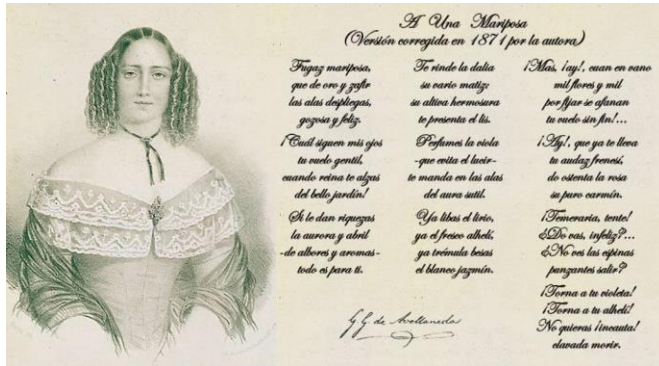 A Una Mariposa
(Versión corregida en 1871 por la autora)
Fugaz mariposa,
que de oro y zafir
las alas despliegas,
gozosa y feliz.
¡Cuál siguen mis ojos
tu vuelo gentil,
cuando reina te alzas
del bello jardín!
Si le dan riquezas
la aurora y abril
-de albores y aromas-
todo es para ti.
Te rinde la dalia
su vario matiz;
su altiva hermosura
te presenta el lis.
Perfumes la viola
-que evita el lucir-
te manda en las alas
del aura sutil.
Ya libas el lirio,
ya el fresco alhelí,
ya trémula besas
el blanco jazmín.
¡Mas, ¡ay!, cuan en vano
mil flores y mil
por fijar se afanan
tu vuelo sin fin!...
¡Ay!, que ya te lleva
tu audaz frenesí,
do ostenta la rosa
su puro carmín.
¡Temeraria, tente!
¿Do vas, infeliz?...
¿No ves las espinas
punzantes salir?
¡Torna a tu violeta!
¡Torna a tu alhelí!
No quieras ¡incauta!
clavada morir.
G G de Avellaneda